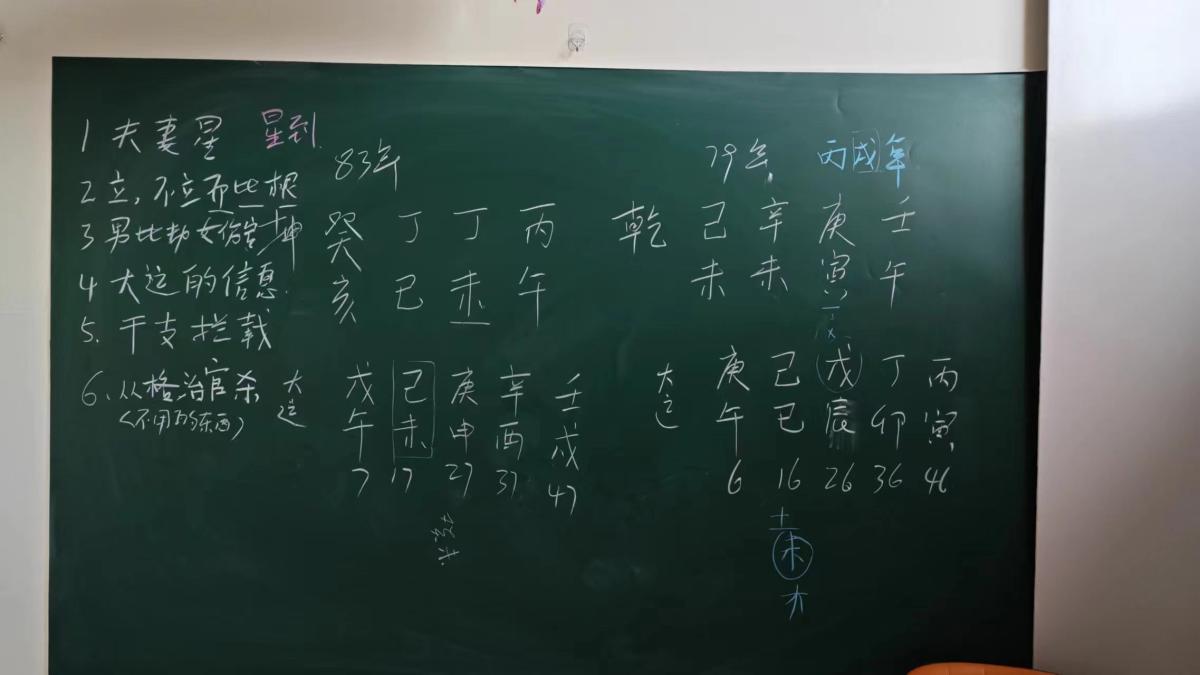 1 夫妻星 星到
2 立，不立而比根
3 男比劫女伤官 坤
4 大运的信息
5. 干支拦截
6. 从格治官杀
(不用的东西)
83年
癸 丁 丁 丙
亥 巳 未 午
大运
戊 己 庚 辛 壬
午 未 申 酉 戌
7 17 27 37 47
79年 丙戌年
乾 己 辛 庚 壬
未 未 寅 午
大运
庚 己 戊 丁 丙
午 巳 辰 卯 寅
6 16 26 36 46
土
未
木